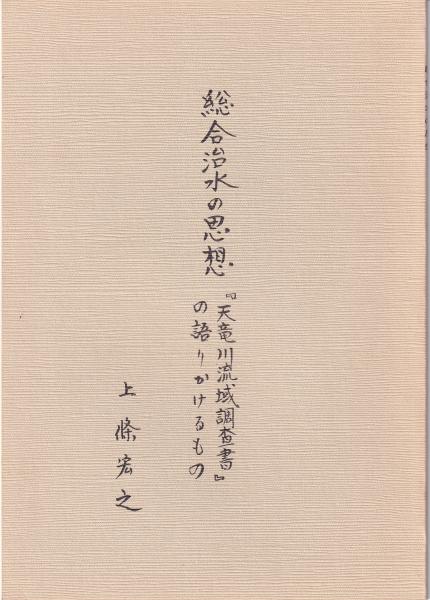 総合治水の思想
『天竜川流域調査書』
の語りかけるもの
上條宏之